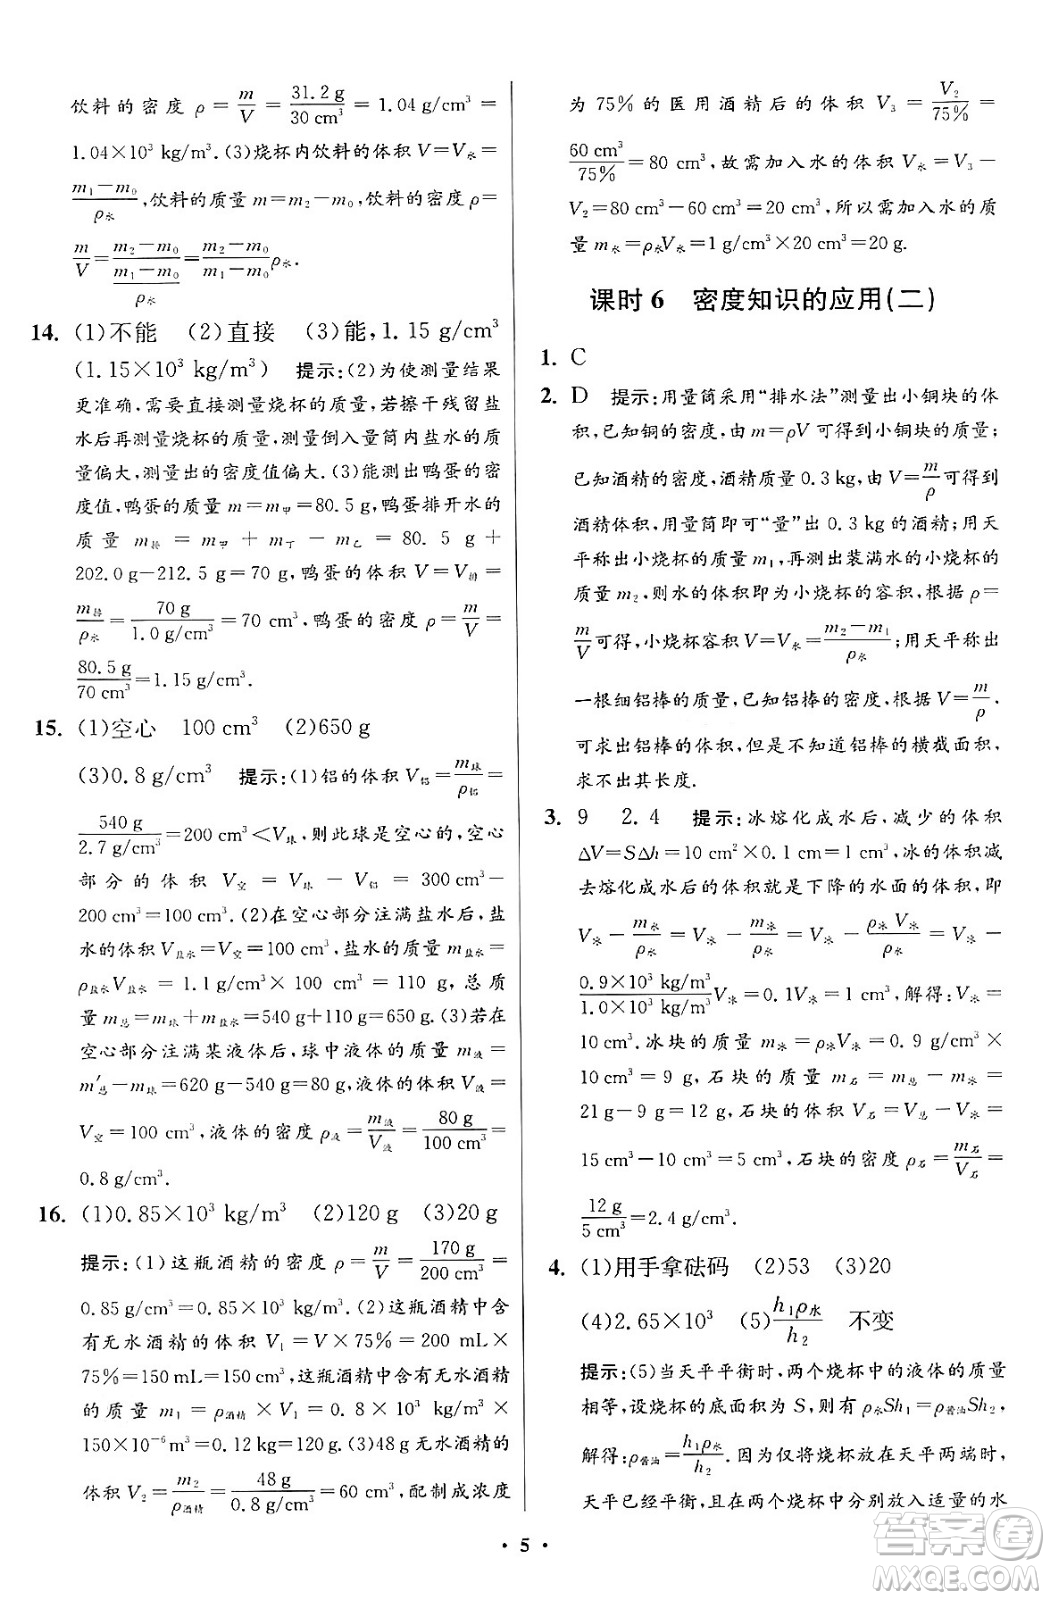 饮料的密度 ρ=m/V=31.2 g/30 cm³=1.04 g/cm³=
1.04×10³ kg/m³.(3)烧杯内饮料的体积 V=V水=
(m₁−m₀)/ρ水,饮料的质量 m=m₂−m₀,饮料的密度 ρ=
m/V=(m₂−m₀)/((m₁−m₀)/ρ水)=(m₂−m₀)/(m₁−m₀)ρ水.
14. (1)不能 (2)直接 (3)能,1.15 g/cm³
(1.15×10³ kg/m³) 提示:(2)为使测量结果
更准确,需要直接测量烧杯的质量,若擦干残留盐
水后再测量烧杯的质量,测量倒入量筒内盐水的质
量偏大,测量出的密度值偏大.(3)能测出鸭蛋的密
度值,鸭蛋的质量 m=m甲=80.5 g,鸭蛋排开水的
质量 m排=m甲+m丁−m乙=80.5 g+
202.0 g−212.5 g=70 g,鸭蛋的体积 V=V排=
m排/ρ水=70 g/1.0 g/cm³=70 cm³,鸭蛋的密度 ρ=m/V=
80.5 g/70 cm³=1.15 g/cm³.
15. (1)空心 100 cm³ (2)650 g
(3)0.8 g/cm³ 提示:(1)铝的体积 V铝=m球/ρ铝=
540 g/2.7 g/cm³=200 cm³<V球,则此球是空心的,空心
部分的体积 V空=V球−V铝=300 cm³−
200 cm³=100 cm³.(2)在空心部分注满盐水后,盐
水的体积 V盐水=V空=100 cm³,盐水的质量 m盐水=
ρ盐水V盐水=1.1 g/cm³×100 cm³=110 g,总质
量 m总=m球+m盐水=540 g+110 g=650 g.(3)若在
空心部分注满某液体后,球中液体的质量 m液=
m′总−m球=620 g−540 g=80 g,液体的体积 V液=
V空=100 cm³,液体的密度 ρ液=m液/V液=80 g/100 cm³=
0.8 g/cm³.
16. (1)0.85×10³ kg/m³ (2)120 g (3)20 g
提示:(1)这瓶酒精的密度 ρ=m/V=170 g/200 cm³=
0.85 g/cm³=0.85×10³ kg/m³.(2)这瓶酒精中含
有无水酒精的体积 V₁=V×75%=200 mL×
75%=150 mL=150 cm³,这瓶酒精中含有无水酒精
的质量 m₁=ρ酒精×V₁=0.8×10³ kg/m³×
150×10⁻⁶m³=0.12 kg=120 g.(3)48 g无水酒精的
体积 V₂=m₂/ρ酒精=48 g/0.8 g/cm³=60 cm³,配制成浓度
为75%的医用酒精后的体积 V₃=V₂/75%=
60 cm³/75%=80 cm³,故需加入水的体积 V水=V₃−
V₂=80 cm³−60 cm³=20 cm³,所以需加入水的质
量 m水=ρ水V水=1 g/cm³×20 cm³=20 g.
课时6 密度知识的应用(二)
1. C
2. D 提示:用量筒采用“排水法”测量出小铜块的体
积,已知铜的密度,由 m=ρV 可得到小铜块的质量;
已知酒精的密度,酒精质量 0.3 kg,由 V=m/ρ可得到
酒精体积,用量筒即可“量”出 0.3 kg的酒精;用天
平称出小烧杯的质量 m₁,再测出装满水的小烧杯的
质量 m₂,则水的体积即为小烧杯的容积,根据 ρ=
m/V可得,小烧杯容积 V=V水=(m₂−m₁)/ρ水;用天平称出
一根细铝棒的质量,已知铝棒的密度,根据 V=m/ρ,
可求出铝棒的体积,但是不知道铝棒的横截面积,
求不出其长度.
3. 9 2.4 提示:冰熔化成水后,减少的体积
ΔV=SΔh=10 cm²×0.1 cm=1 cm³,冰的体积减
去熔化成水后的体积就是下降的水面的体积,即
V冰−m水/ρ水=V冰−m冰/ρ水=V冰−ρ冰V冰/ρ水=V冰−
0.9×10³ kg/m³/1.0×10³ kg/m³V冰=0.1V冰=1 cm³,解得:V冰=
10 cm³,冰块的质量 m冰=ρ冰V冰=0.9 g/cm³×
10 cm³=9 g;石块的质量 m石=m总−m冰=
21 g−9 g=12 g,石块的体积 V石=V总−V冰=
15 cm³−10 cm³=5 cm³,石块的密度 ρ石=m石/V石=
12 g/5 cm³=2.4 g/cm³.
4. (1)用手拿砝码 (2)53 (3)20
(4)2.65×10³ (5)h₁ρ水/h₂ 不变
提示:(5)当天平平衡时,两个烧杯中的液体的质量
相等,设烧杯的底面积为 S,则有 ρ水Sh₁=ρ酱油Sh₂,
解得:ρ酱油=h₁ρ水/h₂.因为空烧杯放在天平两端时,
天平已经平衡,且在两个烧杯中分别放入适量的水
· 5 ·
答案卷
MXQE.COM